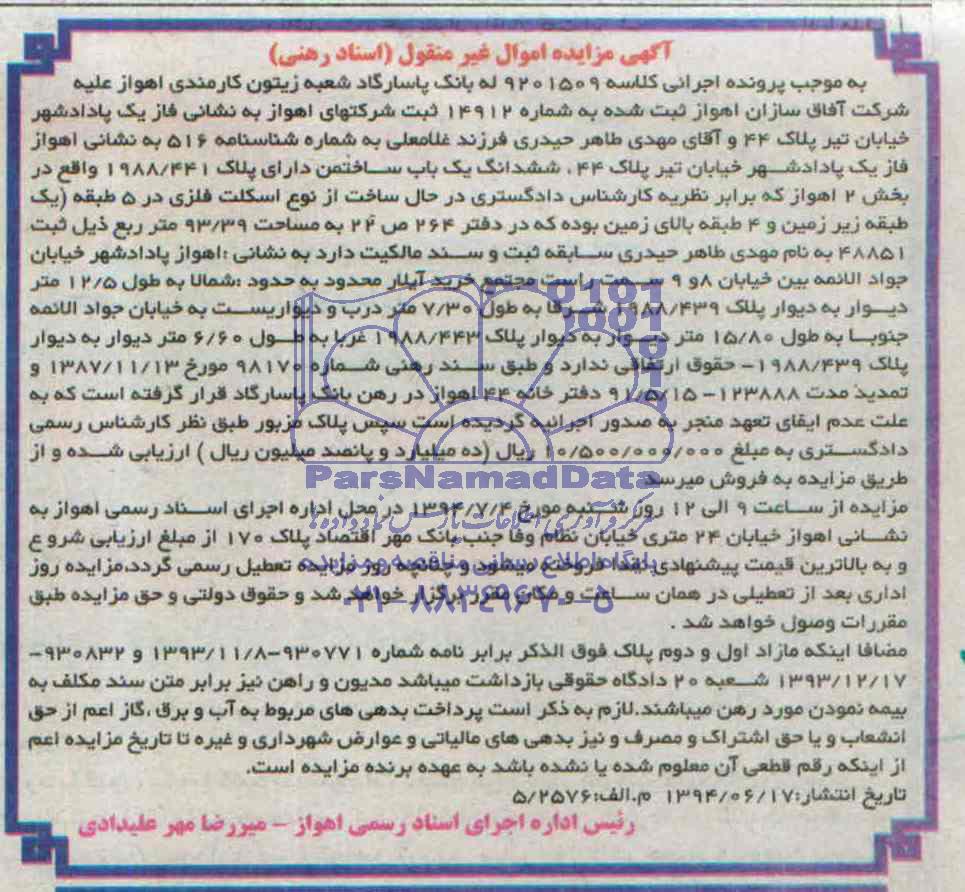 آگهی مزایده اموال غیر منقول (اسناد رهنی)
به موجب پرونده اجرائی کلاسه ۹۲۰۱۵۰۹ له بانک پاسارگاد شعبه زیتون کارمندی اهواز علیه
شرکت آفاق سازان اهواز ثبت شده به شماره ۱۴۹۱۲ ثبت شرکتهای اهواز به نشانی فاز یک پادادشهر
خیابان تیر پلاک ۴۴ و آقای مهدی طاهر حیدری فرزند غلامعلی به شماره شناسنامه ۵۱۶ به نشانی اهواز
فاز یک پادادشهر خیابان تیر پلاک ۴۴، ششدانگ یک باب ساختمن دارای پلاک ۱۹۸۸/۴۴۱ واقع در
بخش ۲ اهواز که برابر نظریه کارشناس دادگستری در حال ساخت از نوع اسکلت فلزی در ۵ طبقه (یک
طبقه زیر زمین و ۴ طبقه بالای زمین بوده که در دفتر ۲۶۴ ص ۲۲ به مساحت ۹۳/۳۹ متر ربع ذیل ثبت
۴۸۸۵۱ به نام مهدی طاهر حیدری سابقه ثبت و سند مالکیت دارد به نشانی :اهواز پادادشهر خیابان
جواد الائمه بین خیابان ۸و ۹ سمت راست مجتمع خرید آیلار محدود به حدود :شمالا به طول ۱۲/۵ متر
دیوار به دیوار پلاک ۱۹۸۸/۴۳۹ شرقا به طول ۷/۳۰ متر درب و دیواریست به خیابان جواد الائمه
جنوبا به طول ۱۵/۸۰ متر دیوار به دیوار پلاک ۱۹۸۸/۴۴۳ غربا به طول ۶/۶۰ متر دیوار به دیوار
پلاک ۱۹۸۸/۴۳۹- حقوق ارتفاقی ندارد و طبق سند رهنی شماره ۹۸۱۷۰ مورخ ۱۳۸۷/۱۱/۱۳ و
تمدید مدت ۱۲۳۸۸۸- ۹۱/۵/۱۵ دفتر خانه ۴۴ اهواز در رهن بانک پاسارگاد قرار گرفته است که به
علت عدم ایفای تعهد منجر به صدور اجرائیه گردیده است سپس پلاک مزبور طبق نظر کارشناس رسمی
دادگستری به مبلغ ۱۰/۵۰۰/۰۰۰/۰۰۰ ریال (ده میلیارد و پانصد میلیون ریال ) ارزیابی شده و از
طریق مزایده به فروش میرسد
ParsNamadData
مزایده از ساعت ۹ الی ۱۲ روز شنبه مورخ ۱۳۹۴/۷/۴ در محل اداره اجرای اسناد رسمی اهواز به
نشانی اهواز خیابان ۲۴ متری خیابان نظام وفا جنب بانک مهر اقتصاد پلاک ۱۷۰ از مبلغ ارزیابی شروع
و به بالاترین قیمت پیشنهادی نقدا فروخته میشود و چنانچه روز مزایده تعطیل رسمی گردد،مزایده روز
اداری بعد از تعطیلی در همان ساعت و مکان مقرر برگزار خواهد شد و حقوق دولتی و حق مزایده طبق
۰۲۱-۸۸۳۴۹۶۷۰-۵
مقررات وصول خواهد شد .
مضافا اینکه مازاد اول و دوم پلاک فوق الذکر برابر نامه شماره ۹۳۰۷۷۱-۱۳۹۳/۱۱/۸ و ۹۳۰۸۳۲-
۱۳۹۳/۱۲/۱۷ شعبه ۲۰ دادگاه حقوقی بازداشت میباشد مدیون و راهن نیز برابر متن سند مکلف به
بیمه نمودن مورد رهن میباشند.لازم به ذکر است پرداخت بدهی های مربوط به آب و برق ،گاز اعم از حق
انشعاب و یا حق اشتراک و مصرف و نیز بدهی های مالیاتی و عوارض شهرداری و غیره تا تاریخ مزایده اعم
از اینکه رقم قطعی آن معلوم شده یا نشده باشد به عهده برنده مزایده است.
تاریخ انتشار:۱۳۹۴/۰۶/۱۷ م.الف:۵/۲۵۷۶
رئیس اداره اجرای اسناد رسمی اهواز - میررضا مهر علیدادی